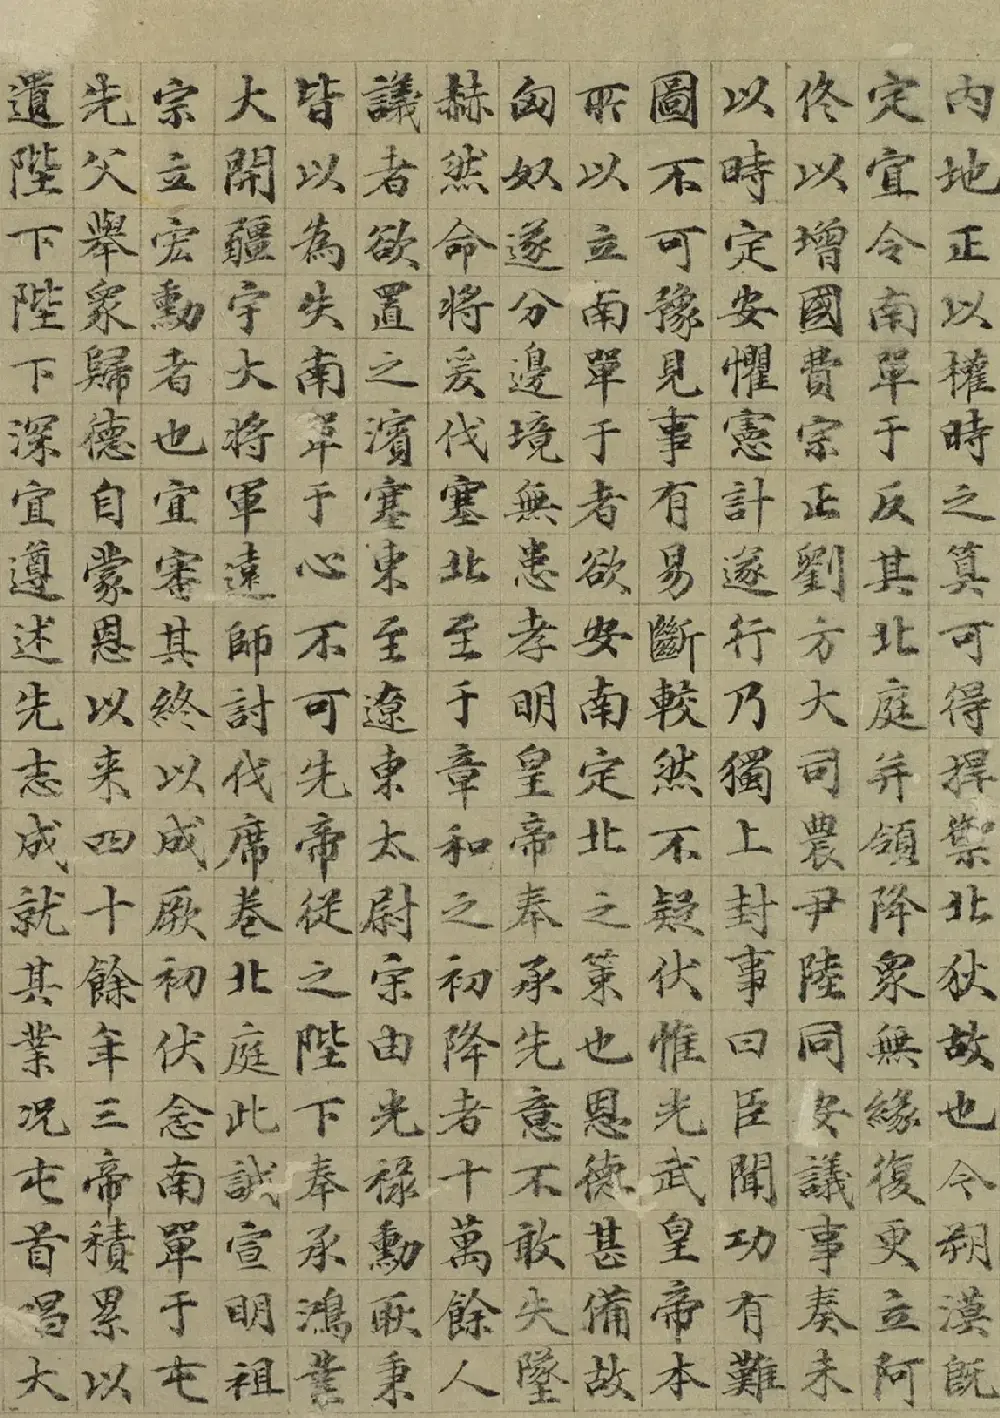 内地正以權時之筭可得捍禦北狄故也今朔漠既
定宜令南單于反其北庭并領降衆無緣復更立阿
佟以增國費宗正劉方大司農尹陸同安議事奏未
以時定安懼憲計遂行乃獨上封事曰臣聞功有難
圖不可豫見事有易斷較然不疑伏惟光武皇帝本
所以立南單于者欲安南定北之策也恩德甚備故
匈奴遂分邊境無患孝明皇帝奉承先意不敢失墜
赫然命將爰伐塞北至于章和之初降者十萬餘人
議者欲置之濱塞東至遼東太尉宋由光禄勳耿秉
皆以為失南單于心不可先帝從之陛下奉承鴻業
大開疆宇大將軍遠師討伐席卷北庭此誠宣明祖
宗立宏勳者也宜審其終以成厥初伏念南單于屯
先父舉衆歸德自蒙恩以来四十餘年三帝積累以
遺陛下陛下深宜遵述先志成就其業况屯首唱大